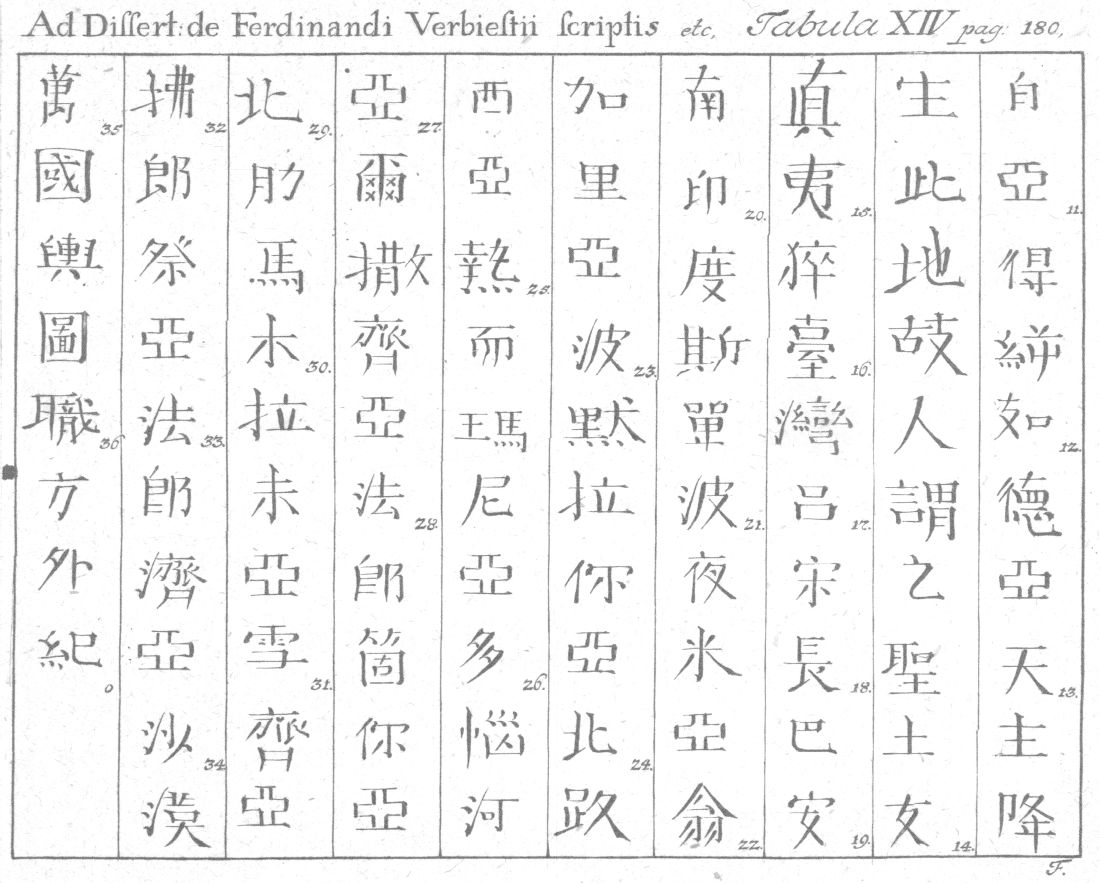 Ad Dissert: de Ferdinandi Verbiestii scriptis etc, Tabula XIV pag: 180,
自亞11.得絣如12.德亞天13.主降
生此地故人謂之聖土女14.
真夷15.猝臺16.灣呂17.宋長18.巴安19.
南印20.度斯單波21.夜米亞翁22.
加里亞波23.默拉你亞北24.路
西亞熱25.而瑪尼亞多26.惱河
亞27.爾撒齊亞法28.郎箇你亞
北29.肋馬木30.拉未亞雪31.齊亞
拂32.郎祭亞法33.郎濟亞沙34.漠
萬35.國輿圖職36方外紀0
F.